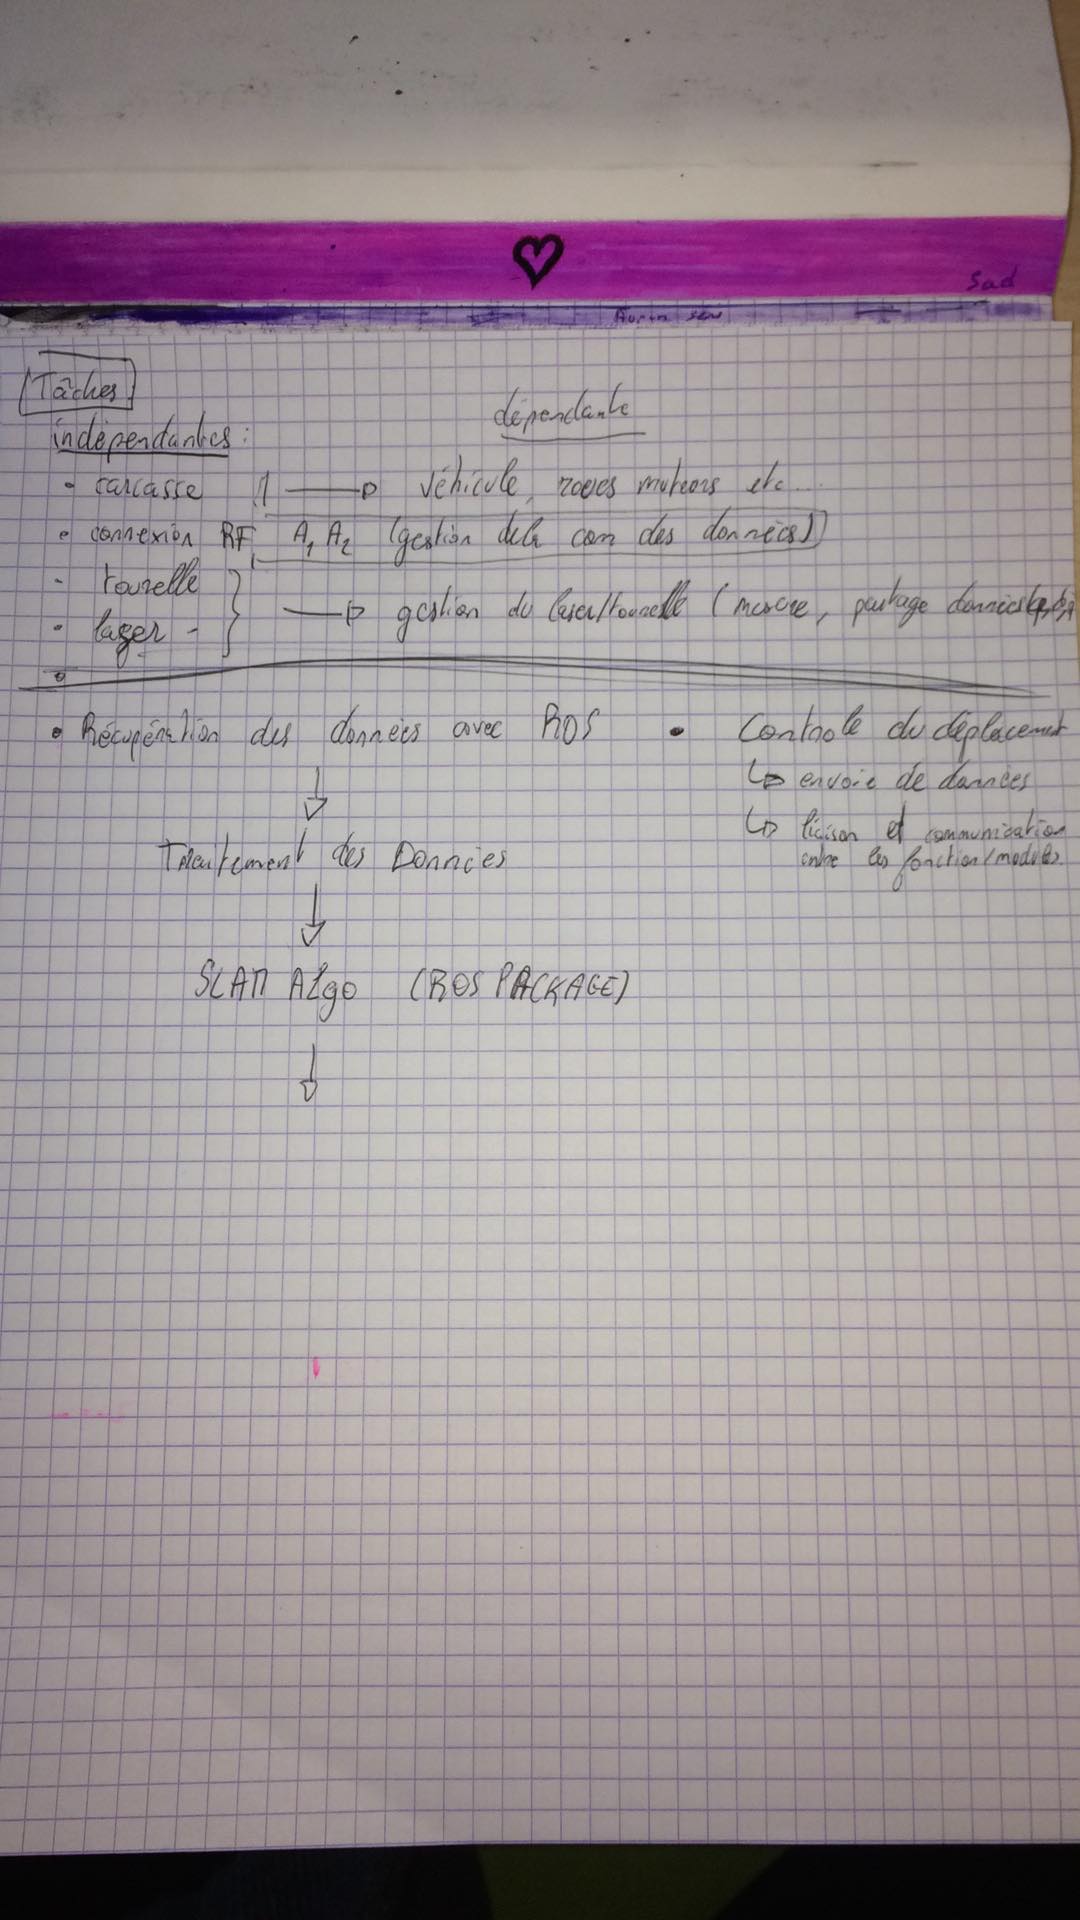 Sad
Tâches
indépendantes :
dépendante
• carcasse → véhicule, roues moteurs etc...
• connexion RF A1 A2 (gestion de la com des données)
- tourelle
• lazer -
→ gestion du laser/tourelle (mesure, partage données
• Récupération des données avec ROS
↓
Traitement des Données
↓
SLAM Algo (ROS PACKAGE)
↓
• Controle du déplacement
↳ envoie de données
↳ liaison et communication
entre les fonction/modules